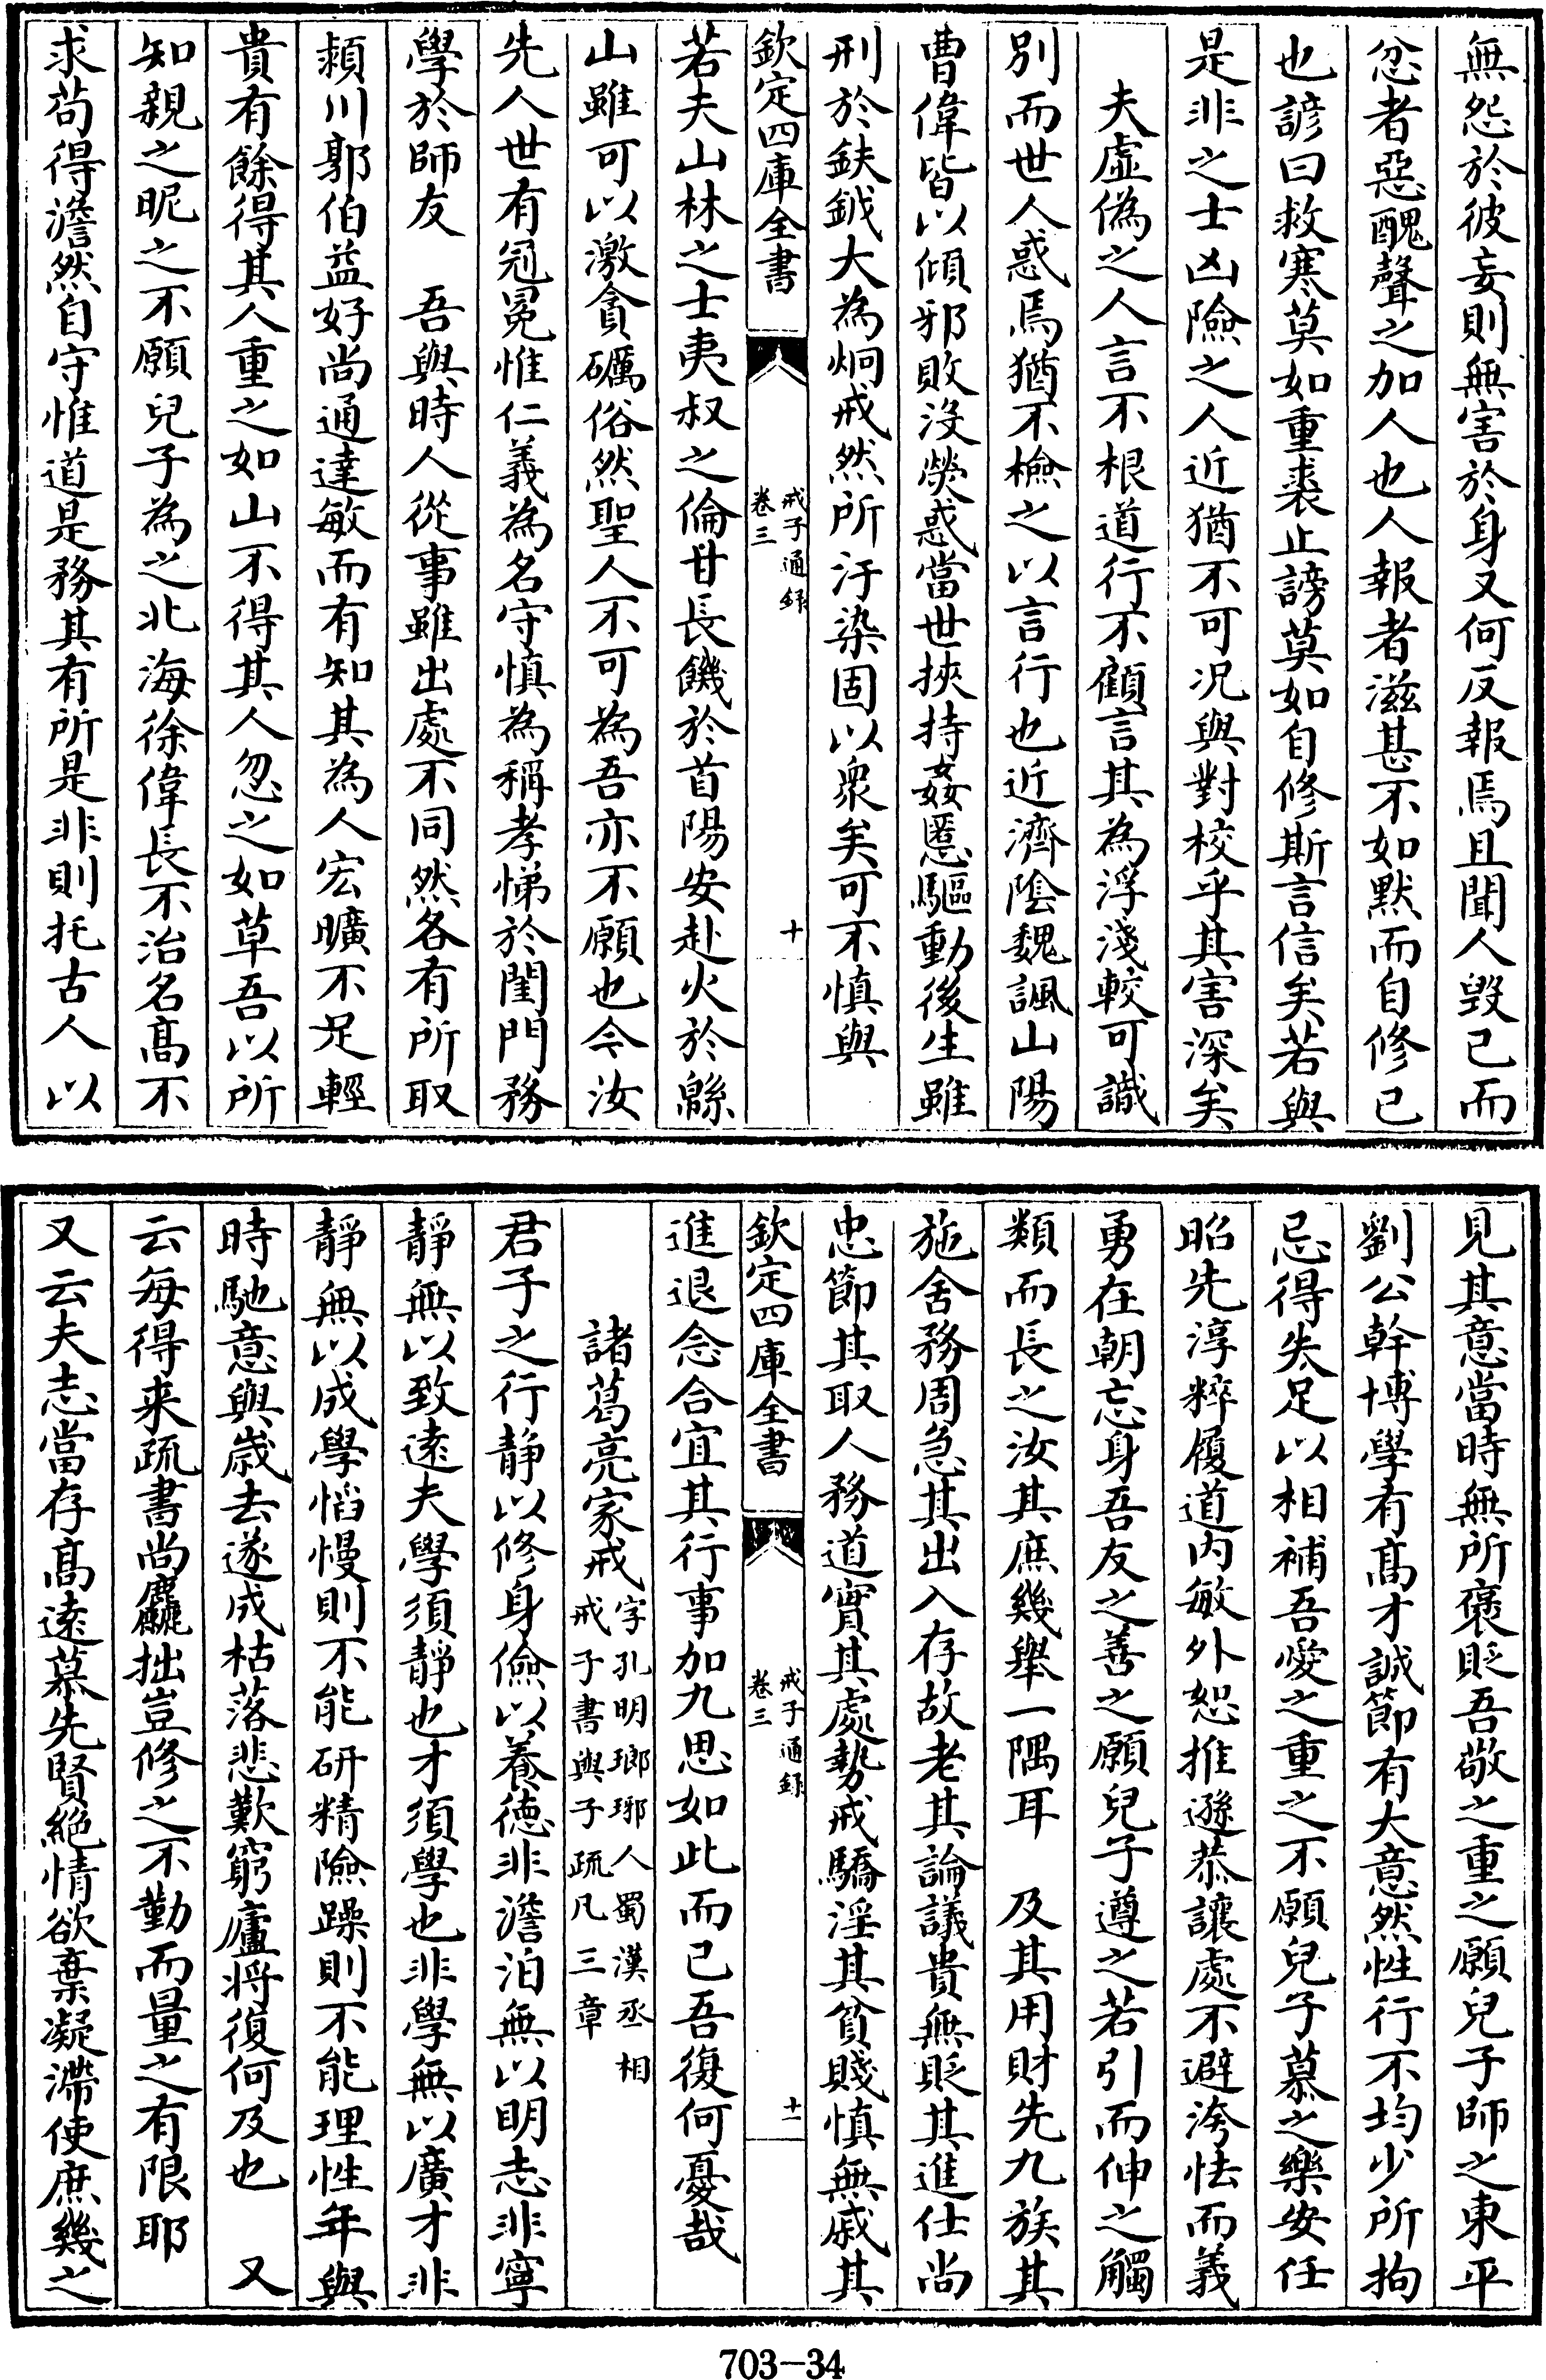 無怨於彼妄則無害於身又何反報焉且聞人毀已而
忿者惡醜聲之加人也人報者滋甚不如默而自修已
也諺曰救寒莫如重裘止謗莫如自修斯言信矣若與
是非之士凶險之人近猶不可況與對校乎其害深矣
夫虛偽之人言不根道行不顧言其為浮淺較可識
別而世人惑焉猶不檢之以言行也近濟陰魏諷山陽
曹偉皆以傾邪敗沒熒惑當世挾持姦慝驅動後生雖
刑於鈇鉞大為炯戒然所汙染固以衆矣可不慎與
欽定四庫全書
戒子通録
卷三
十
若夫山林之士夷叔之倫甘長饑於首陽安赴火於緜
山雖可以激貪礪俗然聖人不可為吾亦不願也今汝
先人世有冠冕惟仁義為名守慎為稱孝悌於閨門務
學於師友　吾與時人從事雖出處不同然各有所取
潁川郭伯益好尚通達敏而有知其為人宏曠不足輕
貴有餘得其人重之如山不得其人忽之如草吾以所
知親之昵之不願兒子為之北海徐偉長不治名髙不
求茍得澹然自守惟道是務其有所是非則托古人以
見其意當時無所褒貶吾敬之重之願兒子師之東平
劉公幹博學有髙才誠節有大意然性行不均少所拘
忌得失足以相補吾愛之重之不願兒子慕之樂安任
昭先淳粹履道内敏外恕推遜恭讓處不避洿怯而義
勇在朝忘身吾友之善之願兒子遵之若引而伸之觸
類而長之汝其庶幾舉一隅耳　及其用財先九族其
施舍務周急其出入存故老其論議貴無貶其進仕尚
忠節其取人務道實其處勢戒驕淫其貧賤慎無戚其
欽定四庫全書
戒子通録
卷三
十一
進退念合宜其行事加九思如此而已吾復何憂哉
諸葛亮家戒字孔明瑯琊人蜀漢丞相
戒子書與子疏凡三章
君子之行静以修身儉以養徳非澹泊無以明志非寧
靜無以致遠夫學須靜也才須學也非學無以廣才非
靜無以成學慆慢則不能研精險躁則不能理性年與
時馳意與歳去遂成枯落悲歎窮廬将復何及也　又
云每得来疏書尚麤拙豈修之不勤而量之有限耶
又云夫志當存髙遠慕先賢絶情欲棄凝滯使庶幾之
703-34